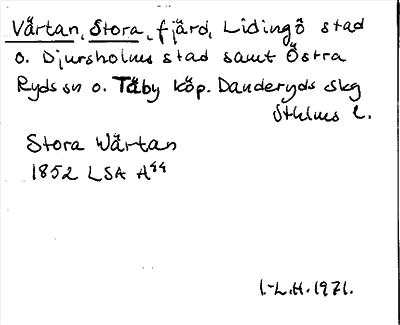 Värtan, Stora, fjärd, Lidingö stad
o. Djursholms stad samt Östra
Ryds sn o. Täby köp. Danderyds skg
Sthlms l.
Stora Wärtan
1852 LSA A⁴⁴
I.-L.H. 1971.